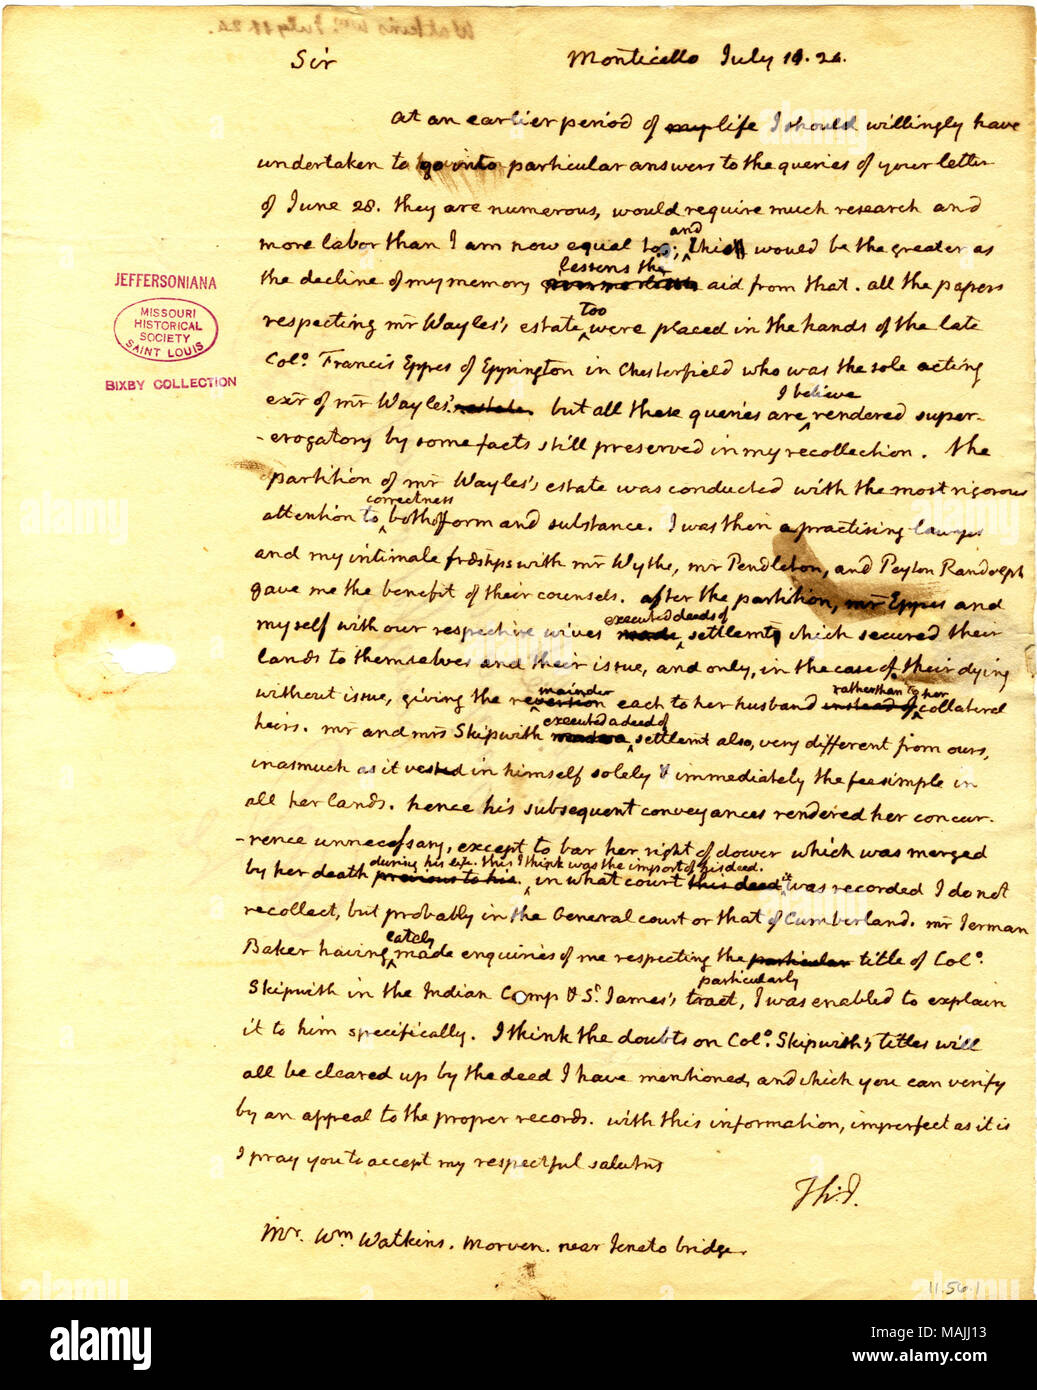 Watkins Wm. July 11. 24.
Sir Monticello July 11. 24.
At an earlier period of my life I should willingly have
undertaken to go into particular answers to the queries of your letter
of June 28. they are numerous, would require much research and
more labor than I am now equal to; and this would be the greater as
the decline of my memory lessens the aid from that. all the papers
respecting mr Wayles's estate too were placed in the hands of the late
Colo. Francis Eppes of Eppington in Chesterfield who was the sole acting
exr of mr Wayles. estate but all these queries are I believe rendered super-
-erogatory by some facts still preserved in my recollection. the
partition of mr Wayles's estate was conducted with the most rigorous
attention to correctness both of form and substance. I was then a practising lawyer
and my intimate frdships with mr Wythe, mr Pendleton, and Peyton Randolph
gave me the benefit of their counsels. after the partition, mr Eppes and
myself with our respective wives made executed deeds of settlemt, which secured their
lands to themselves and their issue, and only, in the case of their dying
without issue, giving the remainder each to her husband instead of rather than to her collateral
heirs. mr and mrs Skipwith made a executed a deed of settlemt also, very different from ours,
inasmuch as it vested in himself solely & immediately the fee simple in
all her lands. hence his subsequent conveyances rendered her concur-
-rence unnecessary, except to bar her right of dower which was merged
by her death previous to his. during his life. this I think was the import of his deed. in what court this deed it was recorded I do not
recollect, but probably in the General court or that of Cumberland. mr Jerman
Baker having lately made enquiries of me respecting the particular title of Colo.
Skipwith in the Indian Camp & St. James's tract, particularly, I was enabled to explain
it to him specifically. I think the doubts on Colo. Skipwith's titles will
all be cleared up by the deed I have mentioned, and which you can verify
by an appeal to the proper records. with this information, imperfect as it is
I pray you to accept my respectful salutns
Th: J.
Mr. Wm Watkins. Morven. near Geneto bridge.
JEFFERSONIANA
MISSOURI
HISTORICAL
SOCIETY
SAINT LOUIS
BIXBY COLLECTION
11.56.1
alamy
Image ID: MAJJ13
www.alamy.com